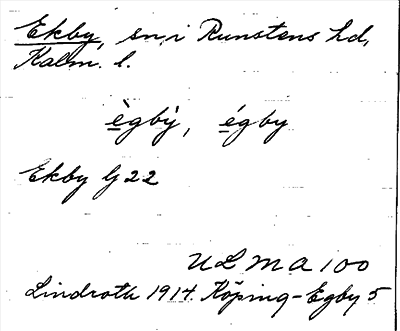 Ekby, sn i Runstens hd,
Kalm. l.
ègbỳ, égby
Ekby G 22
ULMA 100
Lindroth 1914. Köping-Egby 5